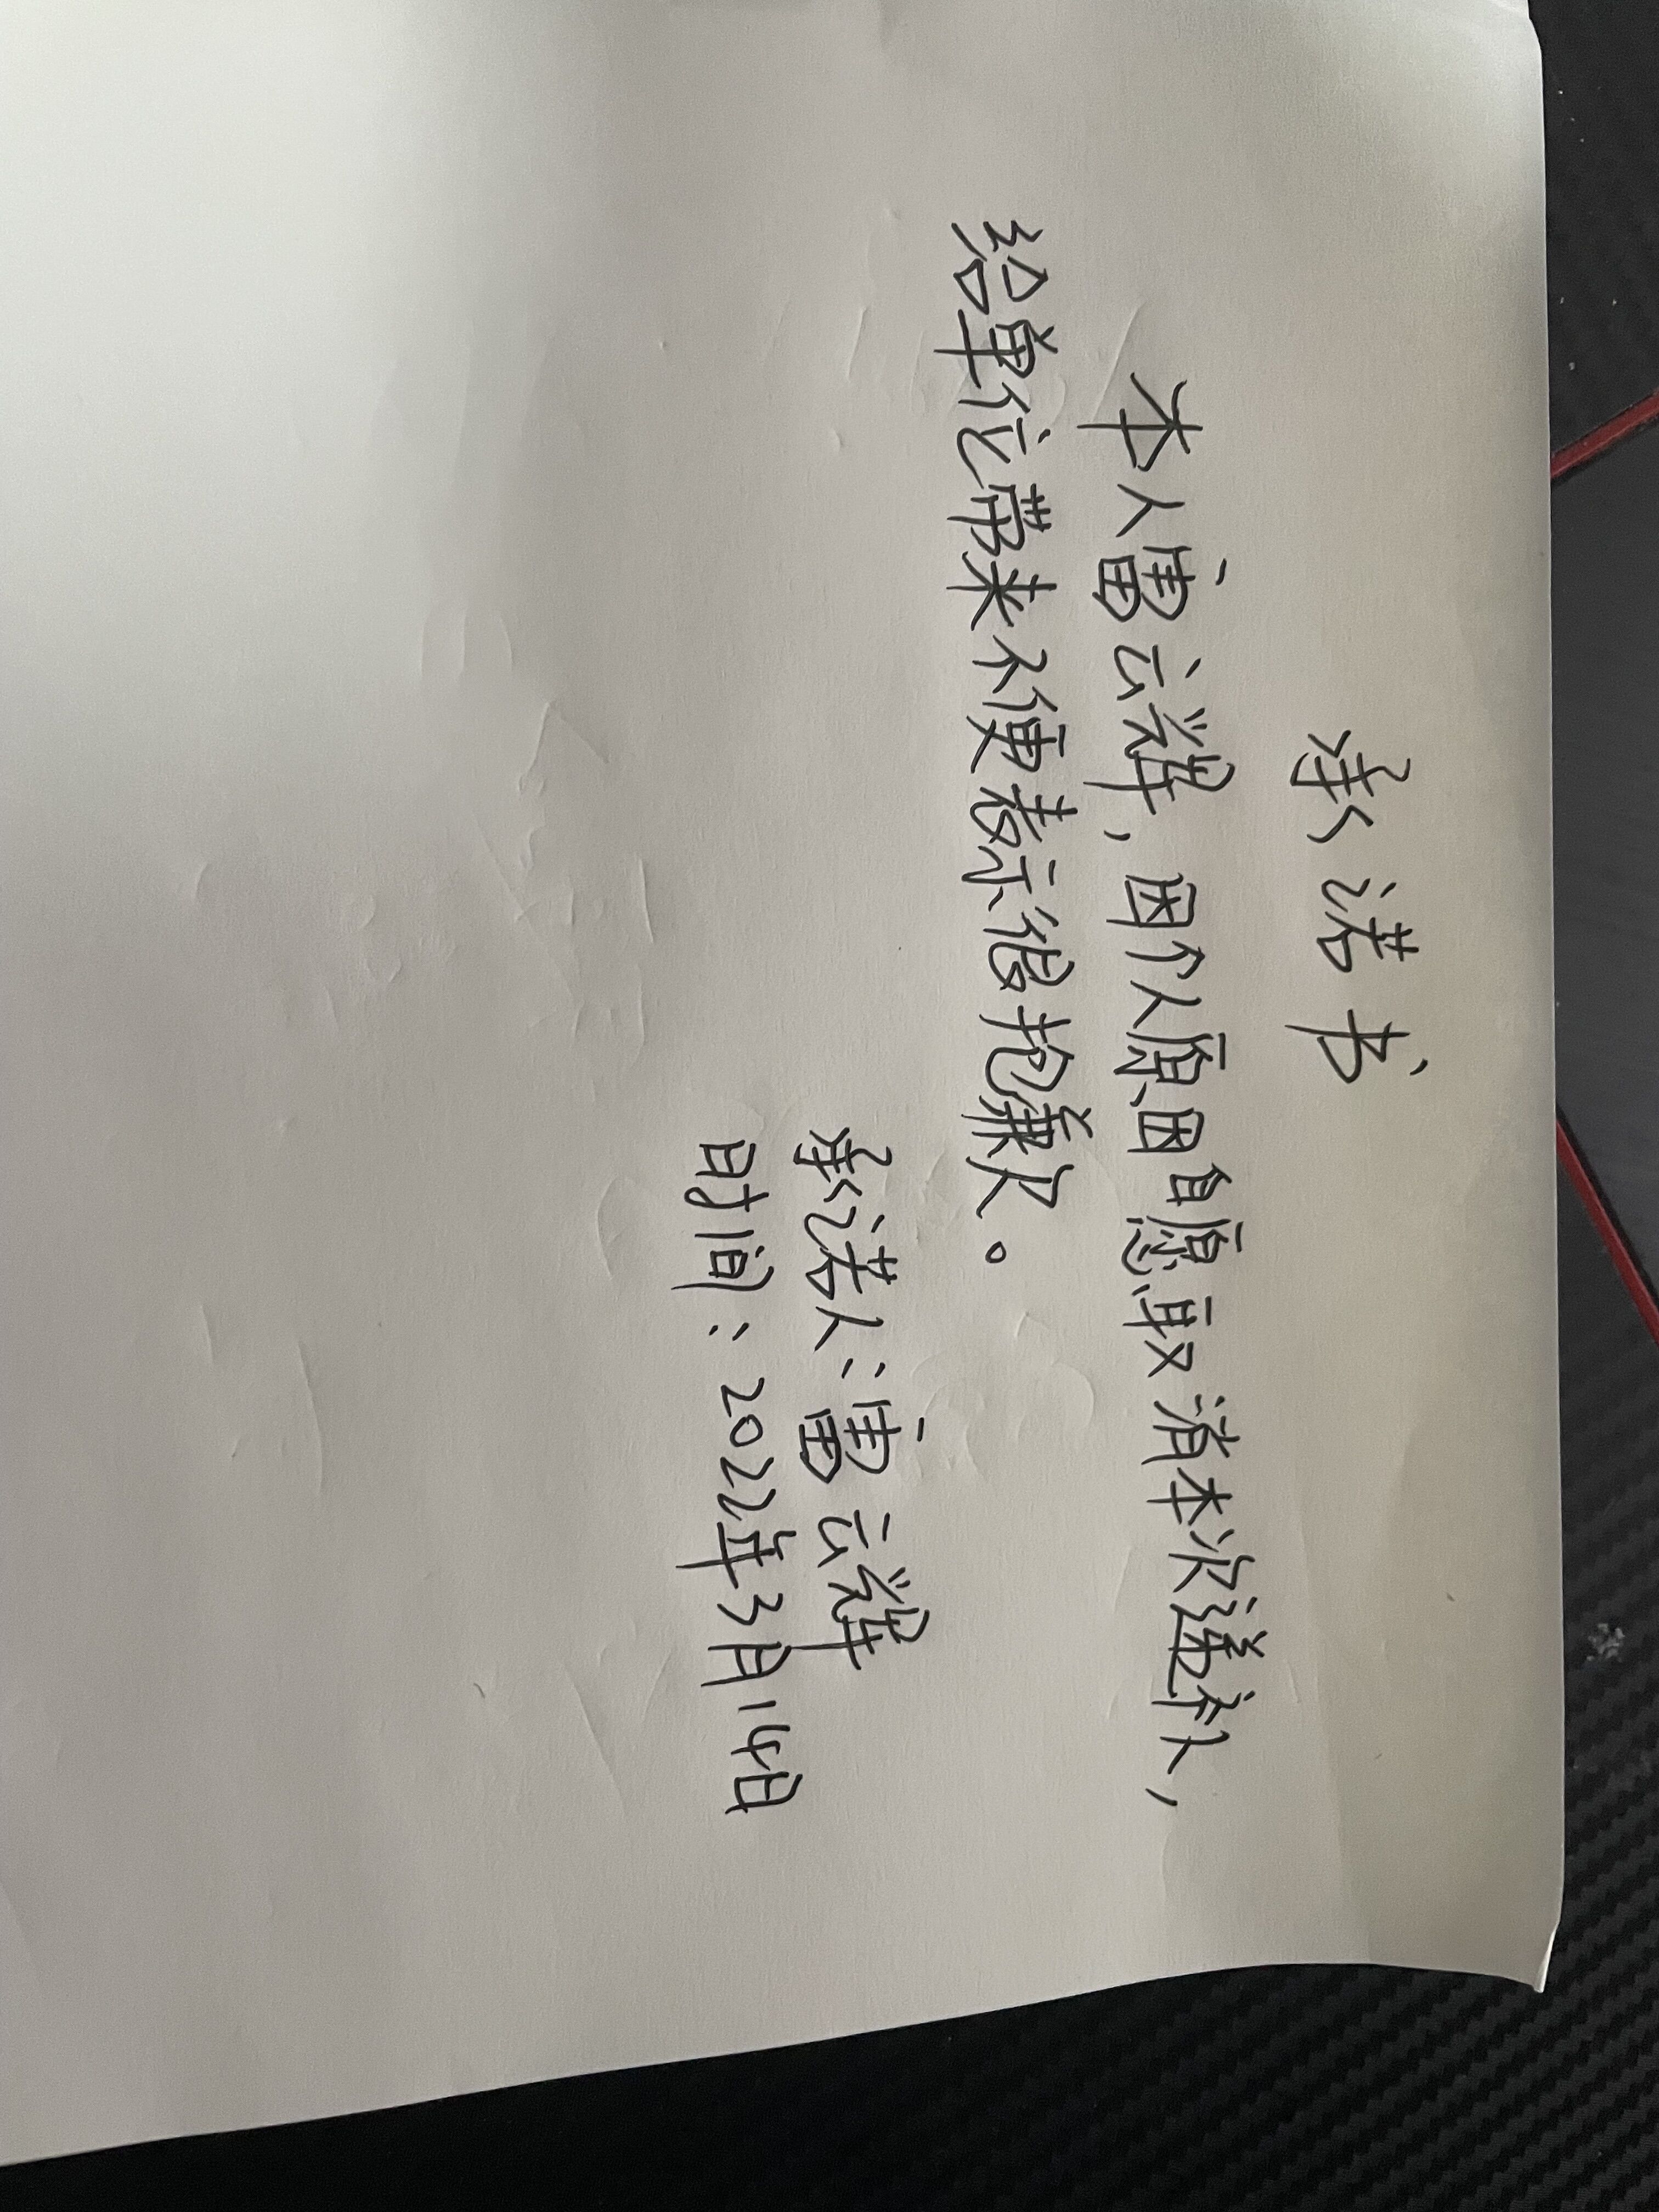 承诺书
本人雷云辉,因个人原因自愿取消本次递补,
给单位带来不便表示很抱歉。
承诺人:雷云辉
时间:2022年3月14日